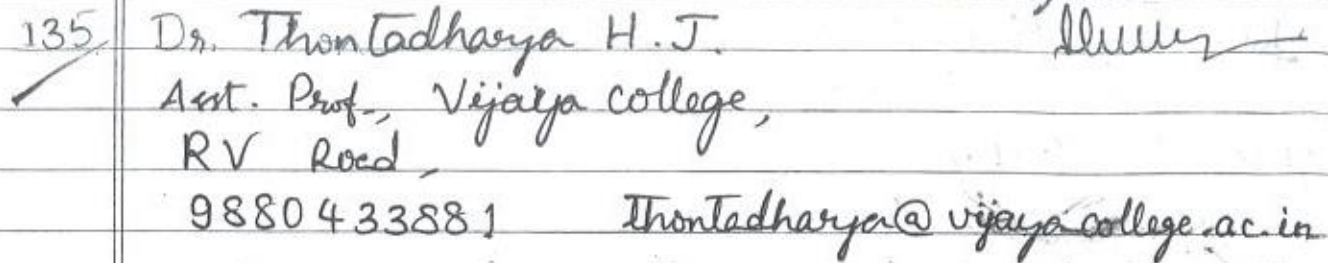 135 Dr. Thontadharya H.J.
Asst. Prof., Vijaya college,
RV Road,
9880433881 thontadharya@vijayacollege.ac.in